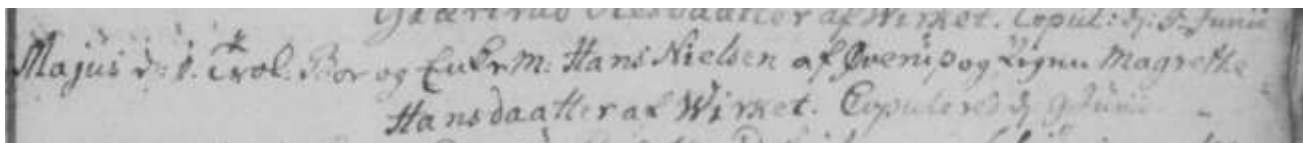 af Wirket. Copul: d: Junii
Majus d: 1. Trol. Bor og EnkeM: Hans Nielsen af Øverup og Pigen Magrethe
Hansdaatter af Wirket. Copulered d 9 Junii